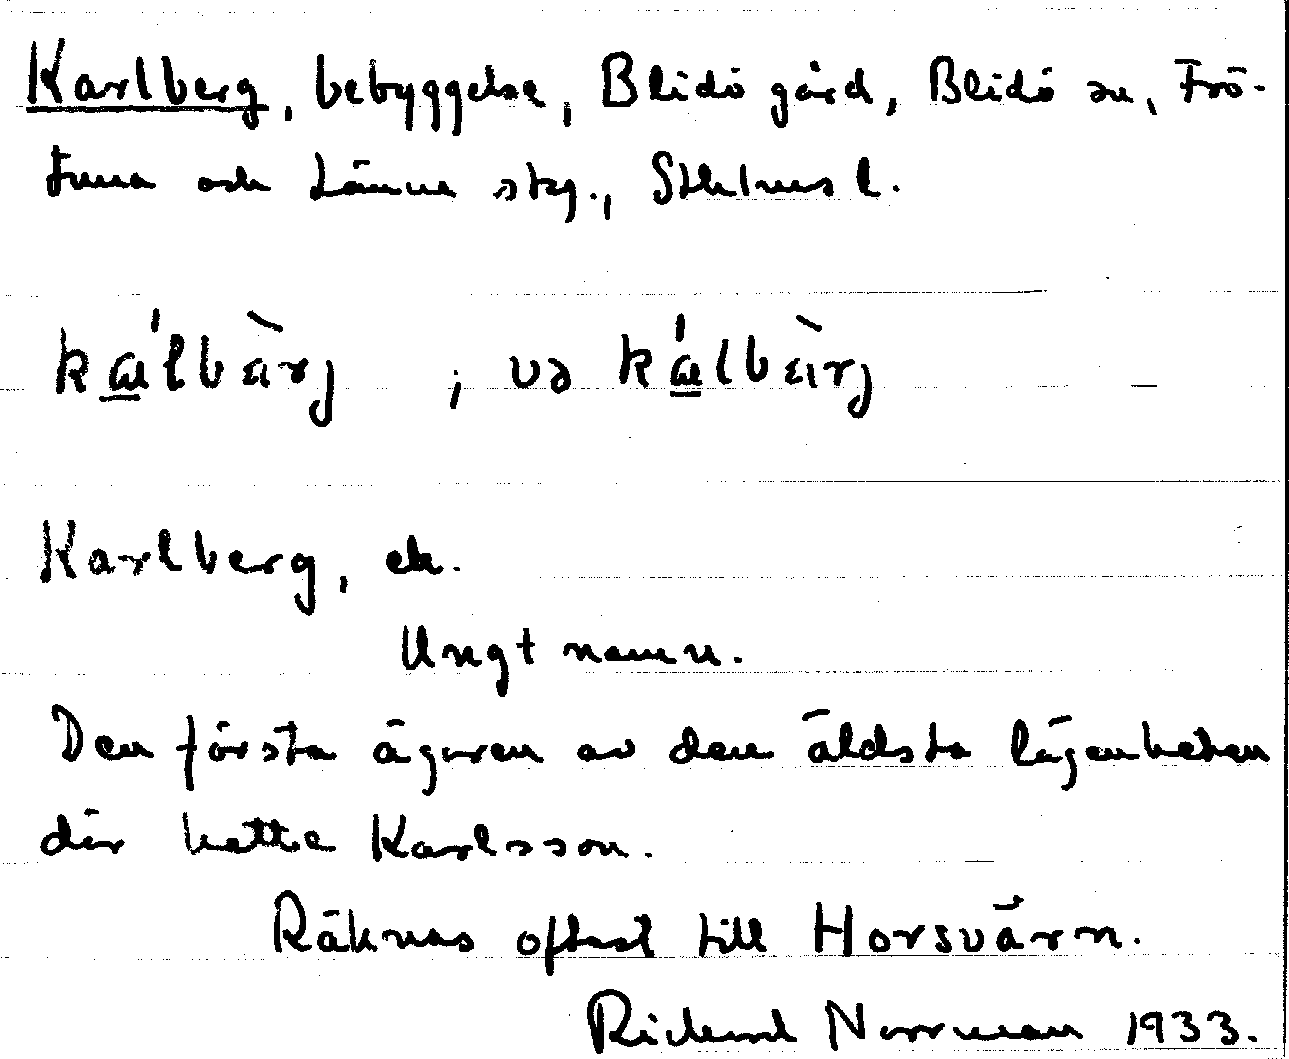 Karlberg, bebyggelse, Blidö gård, Blidö sn, Frö-
tuna och Länna skg., Sthlms l.
kálbàrj ; va kálbàrj
Karlberg, ek.
Ungt namn.
Den första ägaren av den äldsta lägenheten
där hette Karlsson.
Räknas oftast till Horsvärn.
Rickard Norrman 1933.